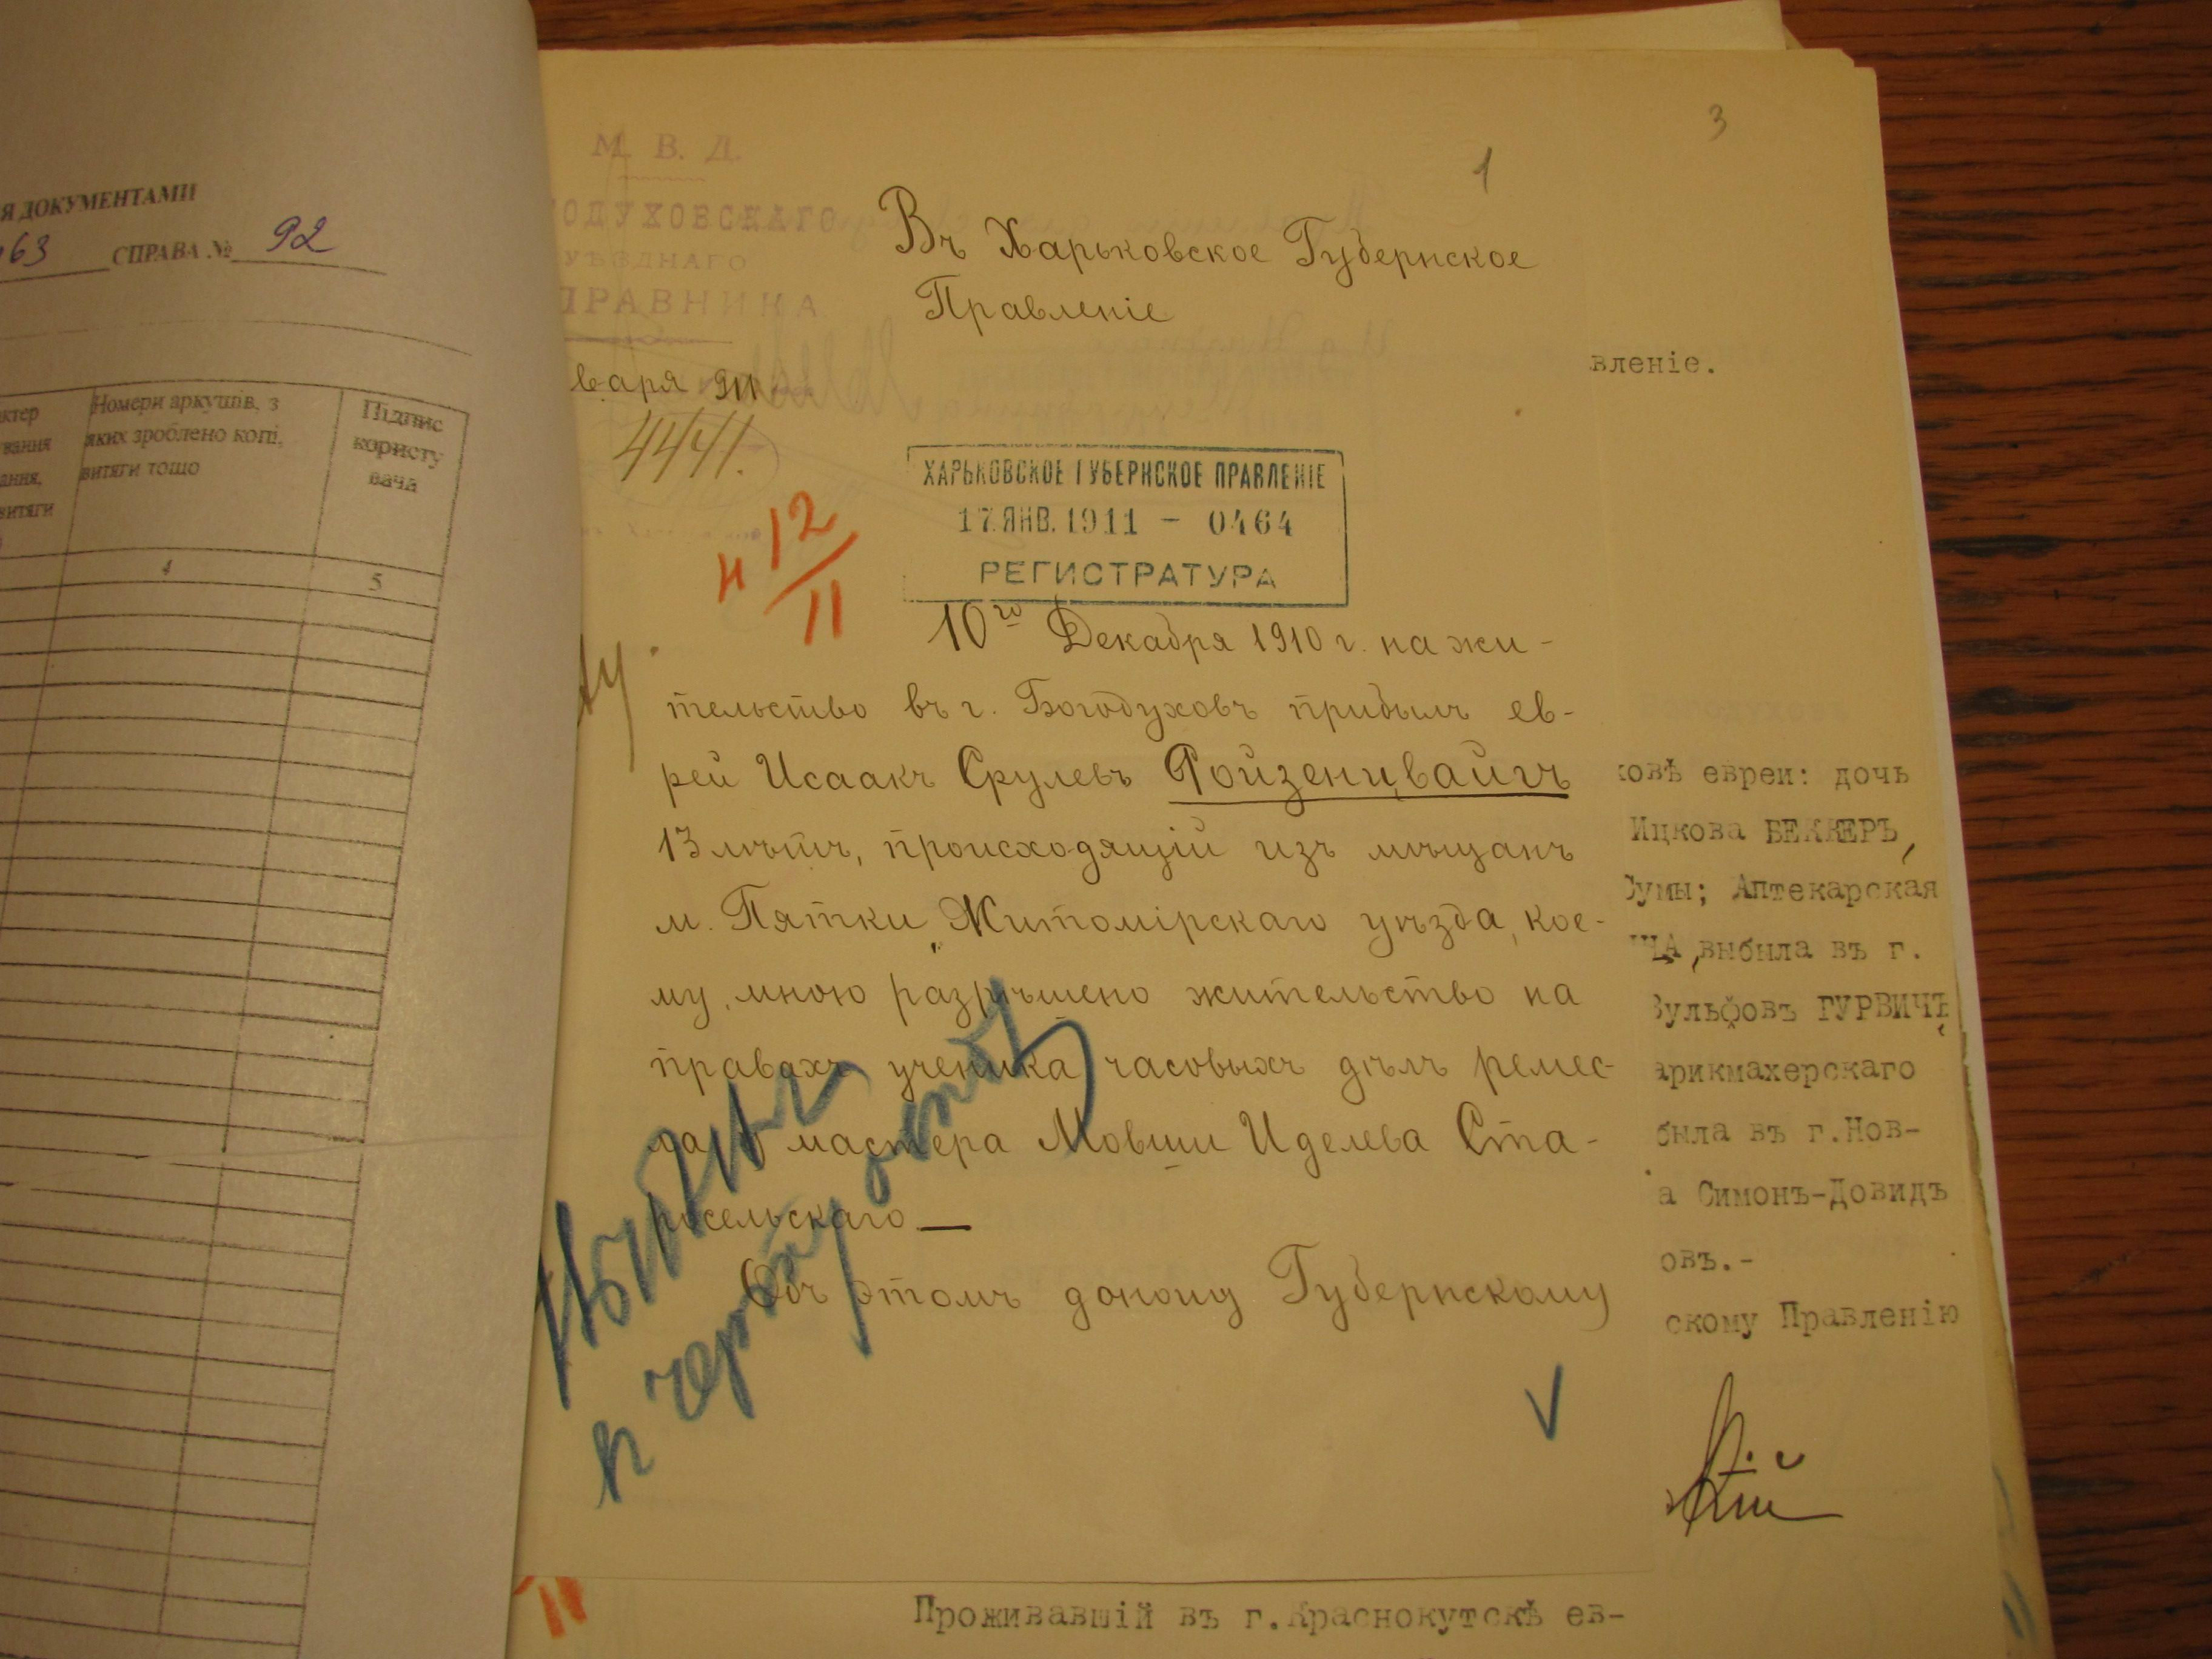 Я ДОКУМЕНТАМИ
63 СПРАВА № 92
Номери аркушів, з
яких зроблено копі,
витяги тощо
Підпис
користу
вача
ктер
вання
витяги
4
5
М. В. Д.
ОДУХОВСКАГО
УѢЗДНАГО
ПРАВНИКА
варя 911
4441.
1
3
Въ Харьковское Губернское
Правленіе
вленіе.
ХАРЬКОВСКОЕ ГУБЕРНСКОЕ ПРАВЛЕНІЕ
17. ЯНВ. 1911 - 0464
РЕГИСТРАТУРА
н 12/11
10го Декабря 1910 г. на жи-
тельство въ г. Богодуховъ прибылъ ев-
рей Исаакъ Срулевъ Ройзенцвайгъ
13 лѣтъ, происходящій изъ мѣщанъ
м. Пятки, Житомірскаго уѣзда, кое-
му, мною разрѣшено жительство на
правахъ ученика часовыхъ дѣлъ ремес-
ла у мастера Мовши Иделева Ста-
росельскаго —
Объ этомъ доношу Губернскому
ковѣ евреи: дочь
Ицкова БЕККЕРЪ,
Сумы; Аптекарская
ША, выбыла въ г.
Вульфовъ ГУРВИЧЪ
арикмахерскаго
была въ г.Нов-
а Симонъ-Довидъ
овъ.-
скому Правленію
Проживавшій въ г.Краснокутскѣ ев-